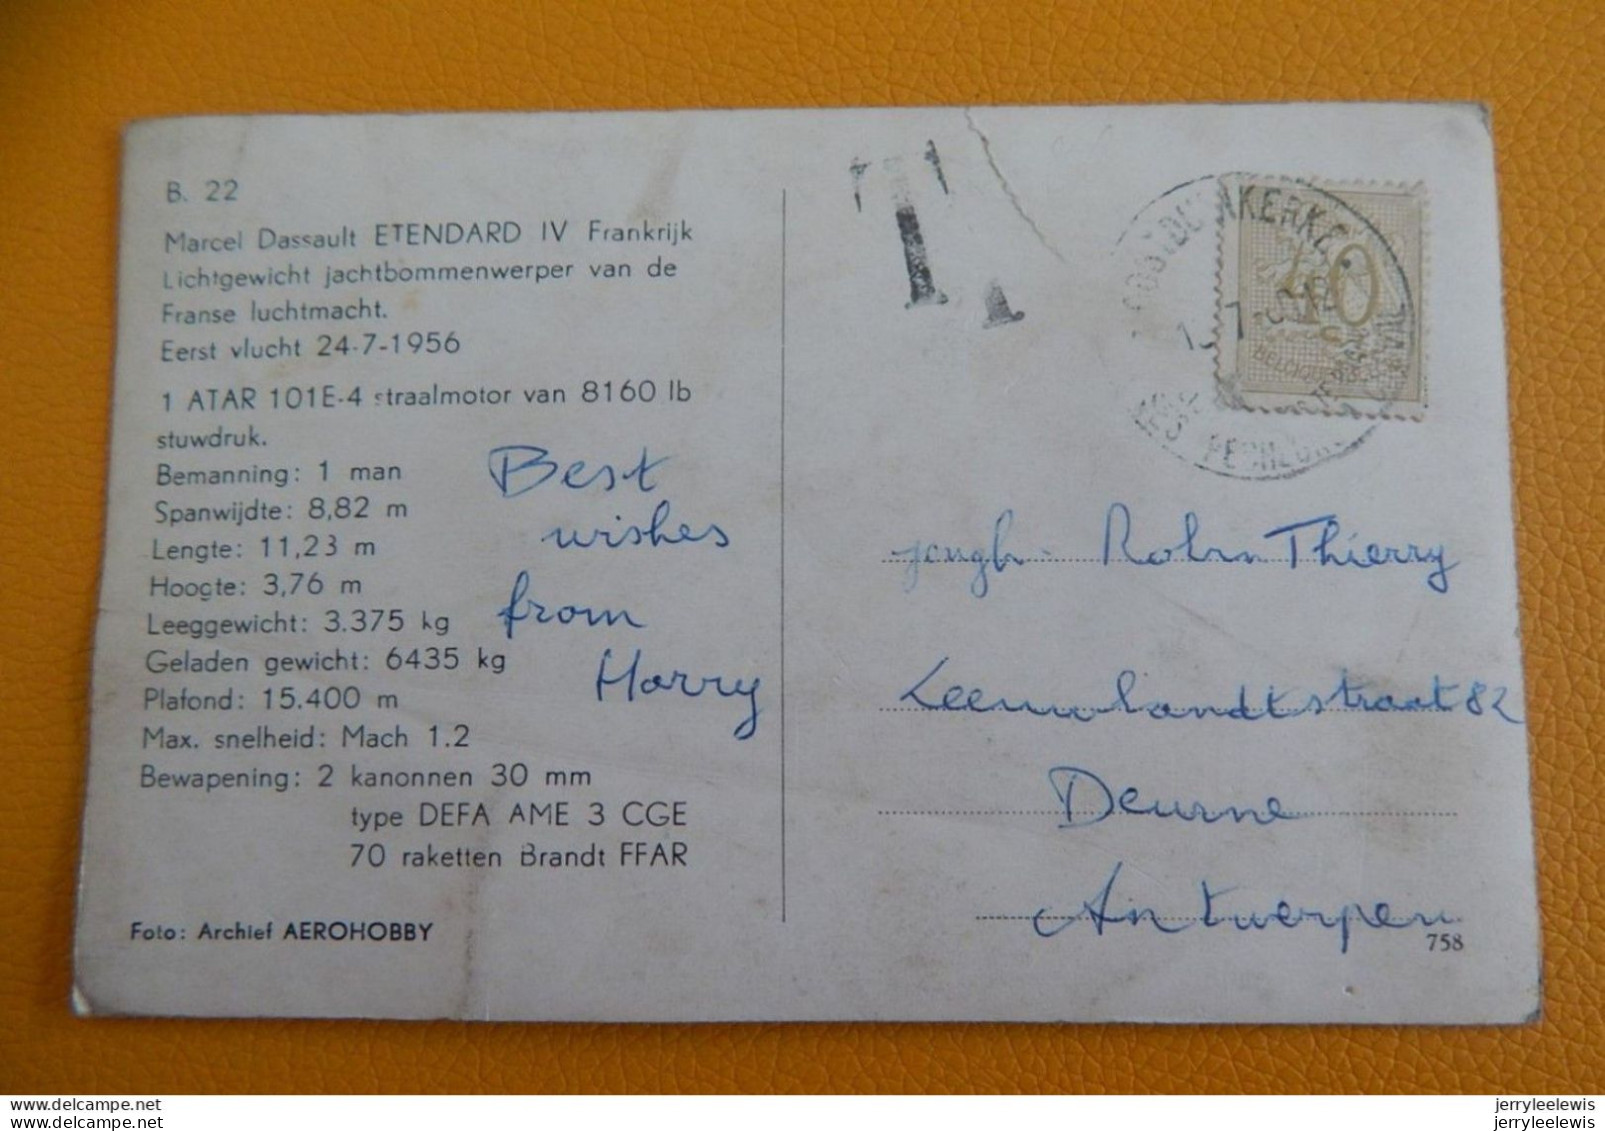 B. 22
Marcel Dassault ETENDARD IV Frankrijk
Lichtgewicht jachtbommenwerper van de
Franse luchtmacht.
Eerst vlucht 24-7-1956
1 ATAR 101E-4 straalmotor van 8160 lb
stuwdruk.
Bemanning: 1 man
Spanwijdte: 8,82 m
Lengte: 11,23 m
Hoogte: 3,76 m
Leeggewicht: 3.375 kg
Geladen gewicht: 6435 kg
Plafond: 15.400 m
Max. snelheid: Mach 1.2
Bewapening: 2 kanonnen 30 mm
type DEFA AME 3 CGE
70 raketten Brandt FFAR
Foto: Archief AEROHOBBY
Best
wishes
from
Harry
T
40
BELGIQUE
jongh. Robin Thierry
Leeuwlandtstraat 82
Deurne
Antwerpen
758
jerryleelewis
jerryleelewis
jerryleelewis
jerryleelewis